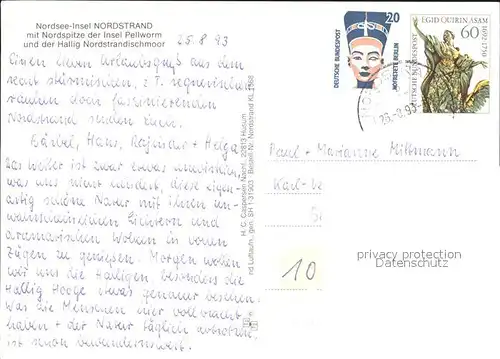 Nordsee-Insel NORDSTRAND
mit Nordspitze der Insel Pellworm
und der Hallig Nordstrandischmoor
25.8.93
Einen lieben Urlaubsgruß aus dem
recht stürmischen, z.T. regnerischen
rauhen aber faszinierenden
Nordstrand senden Euch
Bärbel, Hans, + Helga
Das Wetter ist zwar etwas unwirtlich,
was uns nicht hindert, diese eigen-
artig schöne Natur mit ihren un-
wahrscheinlichen Lichtern und
dramatischen Wolken in vollen
Zügen zu genießen. Morgen wollen
wir uns die Halligen besonders die
Hallig Hooge etwas genauer besehen.
Was die Menschen hier vollbracht
haben + der Natur täglich abtrotzen
ist schon bewundernswert.
H. C. Caspersen Nachf., 25813 Husum
nd Luftaufn. (gen. SH 1-31903) Bestell-Nr. Nordstrand KL 2568
DEUTSCHE BUNDESPOST
20
NOFRETETE BERLIN
EGID QUIRIN ASAM
60
1692
1750
DEUTSCHE BUNDESPOST
Paul + Marianne Mittmann
Karl-
10
privacy protection
Datenschutz